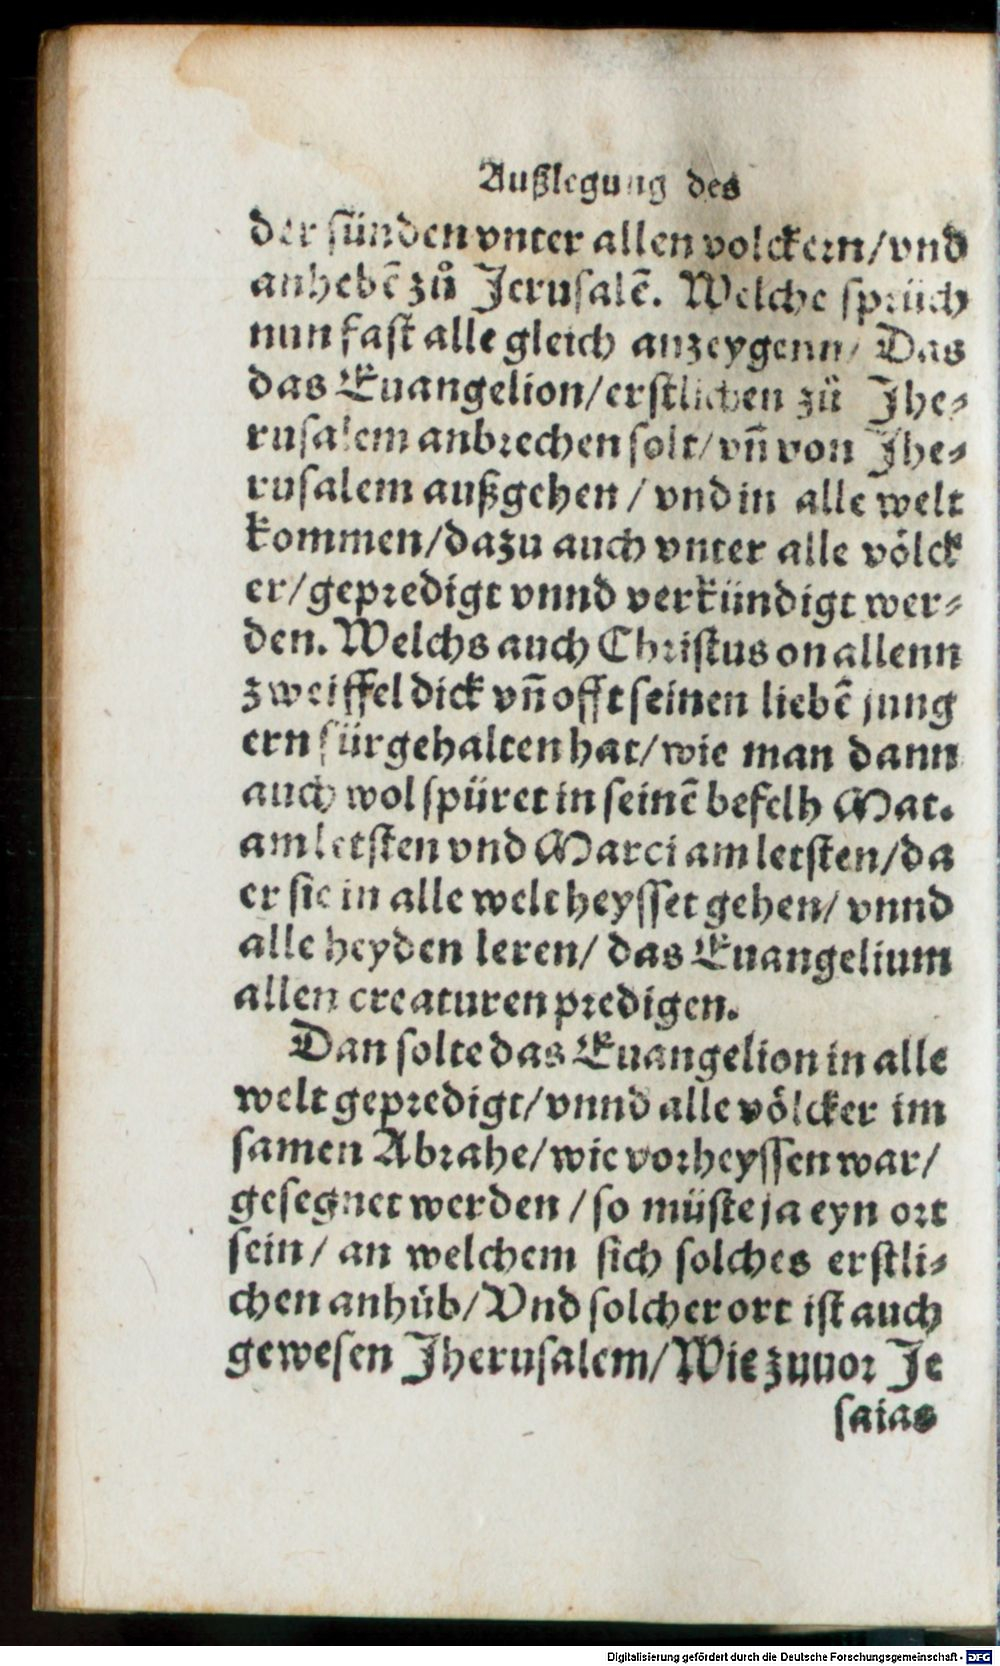 Außlegung des
der sünden vnter allen volckern/vnd
anhebē zů Jerusalē. Welche sprüch
nun fast alle gleich anzeygenn/ Das
das Euangelion/erstlichen zü Jhe⸗
rusalem anbrechen solt/vñ von Jhe⸗
rusalem außgehen/vnd in alle welt
kommen/dazu auch vnter alle völck
er/gepredigt vnnd verkündigt wer⸗
den. Welchs auch Christus on allenn
zweiffel dick vñ offt seinen liebē jung
ern fürgehalten hat/wie man dann
auch wol spüret in seinē befelh Mat.
am letsten vnd Marci am letsten/da
er sie in alle welt heysset gehen/vnnd
alle heyden leren/das Euangelium
allen creaturen predigen.
Dan solte das Euangelion in alle
welt gepredigt/vnnd alle völcker im
samen Abrahe/wie vorheyssen war/
gesegnet werden/so müste ja eyn ort
sein/an welchem sich solches erstli⸗
chen anhüb/Vnd solcher ort ist auch
gewesen Jherusalem/Wie zuuor Je
saias
Digitalisierung gefördert durch die Deutsche Forschungsgemeinschaft - DFG